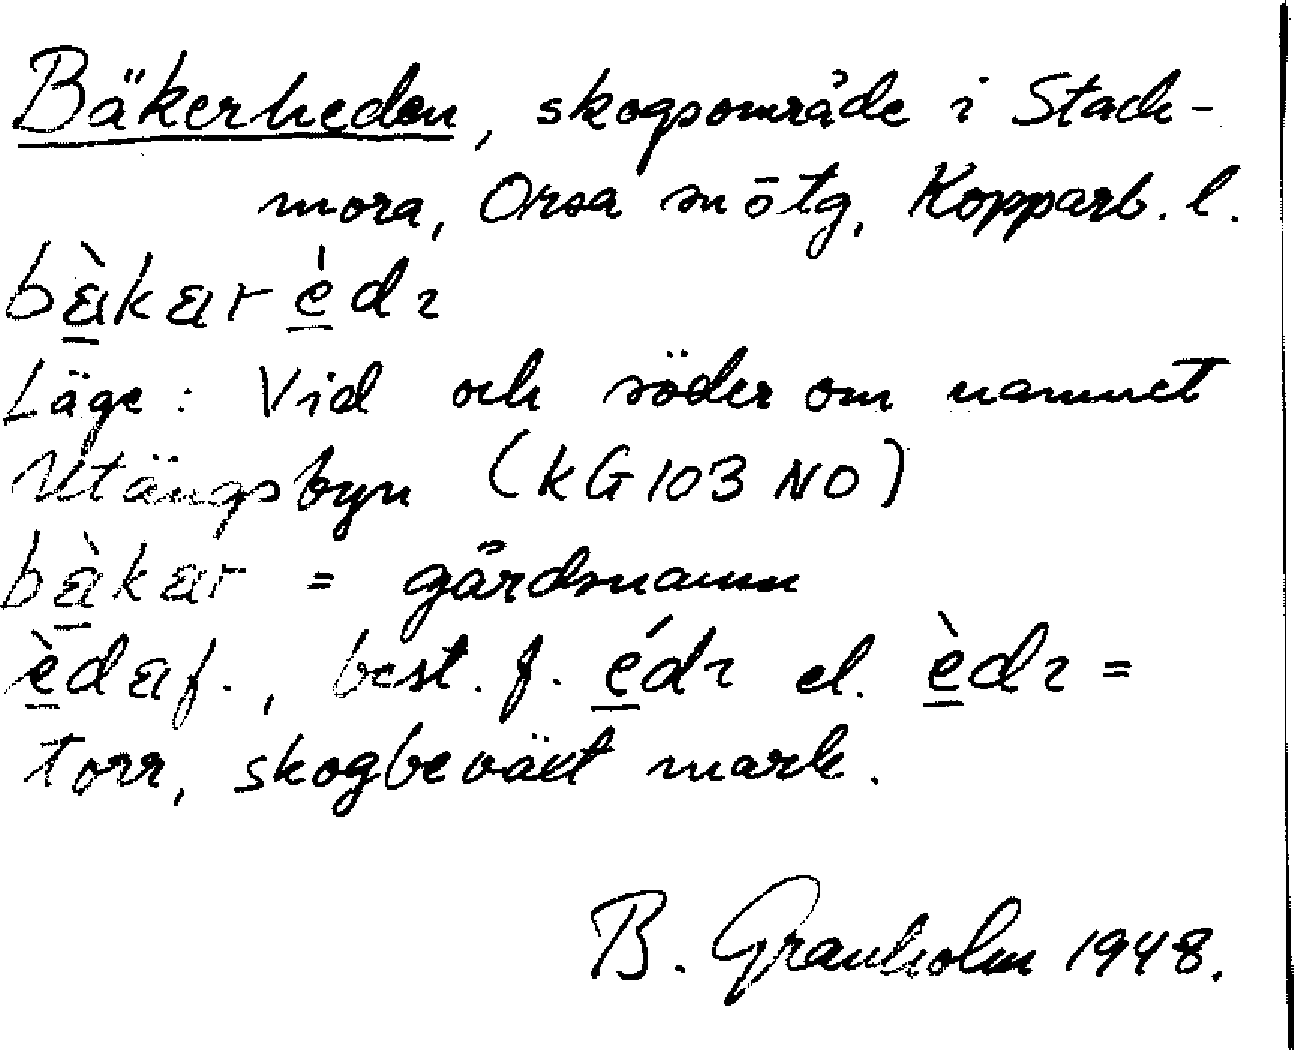 Bäkerheden, skogsområde i Stack-
mora, Orsa sn ötg, Kopparb. l.
bàkaréd2
Läge: Vid och söder om namnet
Utängsbyn (KG 103 NO)
bàkar = gårdsnamn
èdaf., best. f. éd2 el. èd2 =
torr, skogbeväxt mark.
B. Granholm 1948.